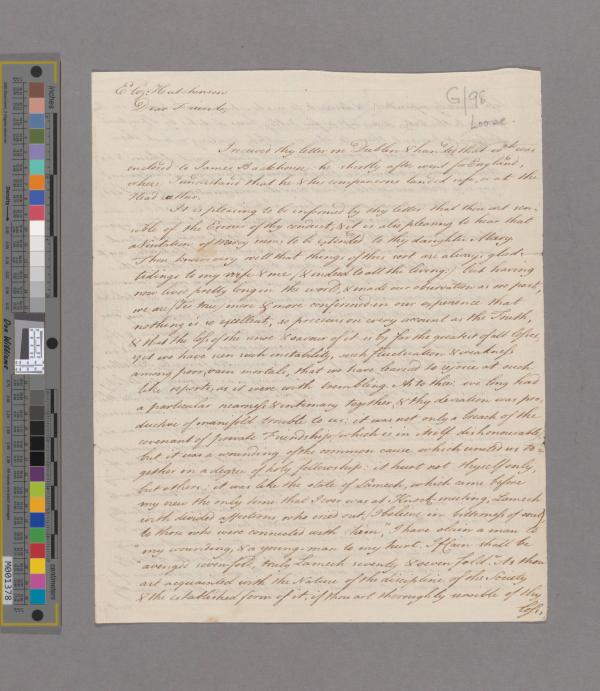 G/98
Loose.
Eliz: Hutchinson
Dear Friend,
I receiv'd thy letter in Dublin & handed that wch. was
enclosed to James Backhouse he shortly after went for England,
where I understand that he & his companions landed safe, or at the
Head
It is pleasing to be informed by thy letter that thou art sen-
sible of the Error of thy conduct, & it is also pleasing to hear that
a Visitation of mercy seems to be extended to thy daughter Mary
Thou knowest very well that things of this sort are always glad
tidings to my wife & me, (& indeed to all the living) but having
now lived pretty long in the world, & made our observation as we past,
we are (tis true) more & more confirmed in our experience that
nothing is so excellent, so precious on every account as the Truth,
& that the loss of the sense & savour of it is by far the greatest of all losses,
yet we have seen such instability, such fluctuation & weakness
among poor, vain mortals, that we have learned to rejoice at such
like reports, as it were with trembling. As to thee: we long had
a particular nearness & intimacy together, & thy deviation was pro-
ductive of manifold trouble to us; it was not only a breach of the
covenant of private Friendship, which is in itself dishonourable,
but it was a wounding of the common cause which united us to-
gether in a degree of holy fellowship: it hurt not thyself only,
but others: it was like the state of Lamech, which came before
my view the only time that I ever was at Knock meeting, Lamech
with divided affections, who cried out, I believe, in bitterness of soul
to those who were connected with him, "I have slain a man to
"my wounding, & a young-man to my hurt. If Cain shall be
"avenged sevenfold, truly Lamech seventy & seven fold." As thou
art acquainted with the Nature of the discipline of the Society
& the established form of it; if thou art thoroughly sensible of thy
loss,
inches
centimetres
Don Williams
M001378